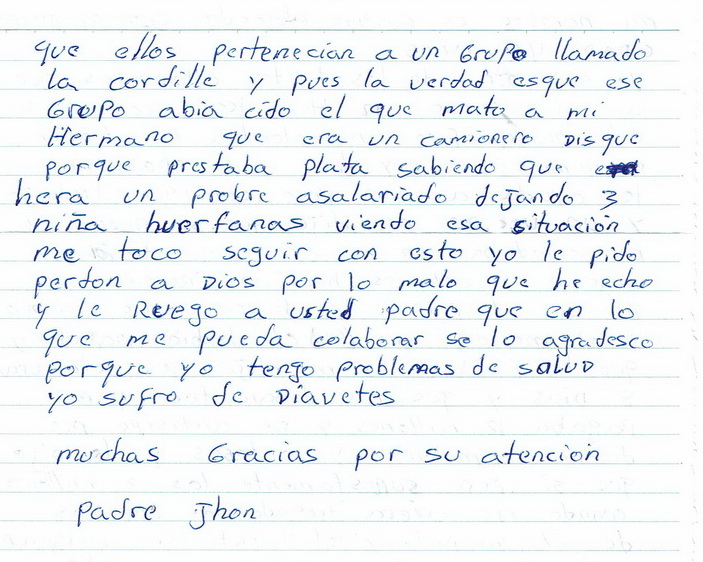 que ellos pertenecian a un Grupo llamado
la cordille y pues la verdad esque ese
Grupo abia cido el que mato a mi
Hermano que era un camionero Disque
porque prestaba plata sabiendo que
hera un probre asalariado dejando 3
niña huerfanas viendo esa situación
me toco seguir con esto yo le pido
perdon a Dios por lo malo que he echo
y le Ruego a usted padre que en lo
que me pueda colaborar se lo agradesco
porque yo tengo problemas de salud
yo sufro de Diavetes
muchas Gracias por su atencion
padre Jhon